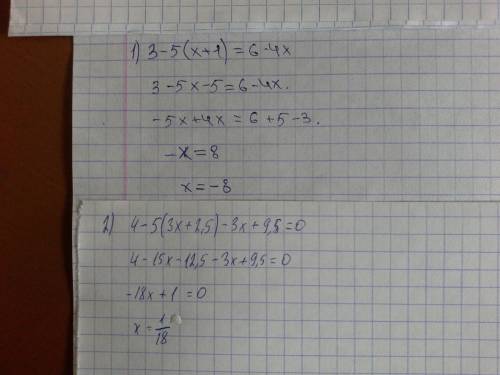 1) 3-5(x+1)=6-4x
3-5x-5=6-4x.
-5x+4x=6+5-3.
-x=8
x=-8
2) 4-5(3x+2,5)-3x+9,5=0
4-15x-12,5-3x+9,5=0
-18x+1=0
x=1/18